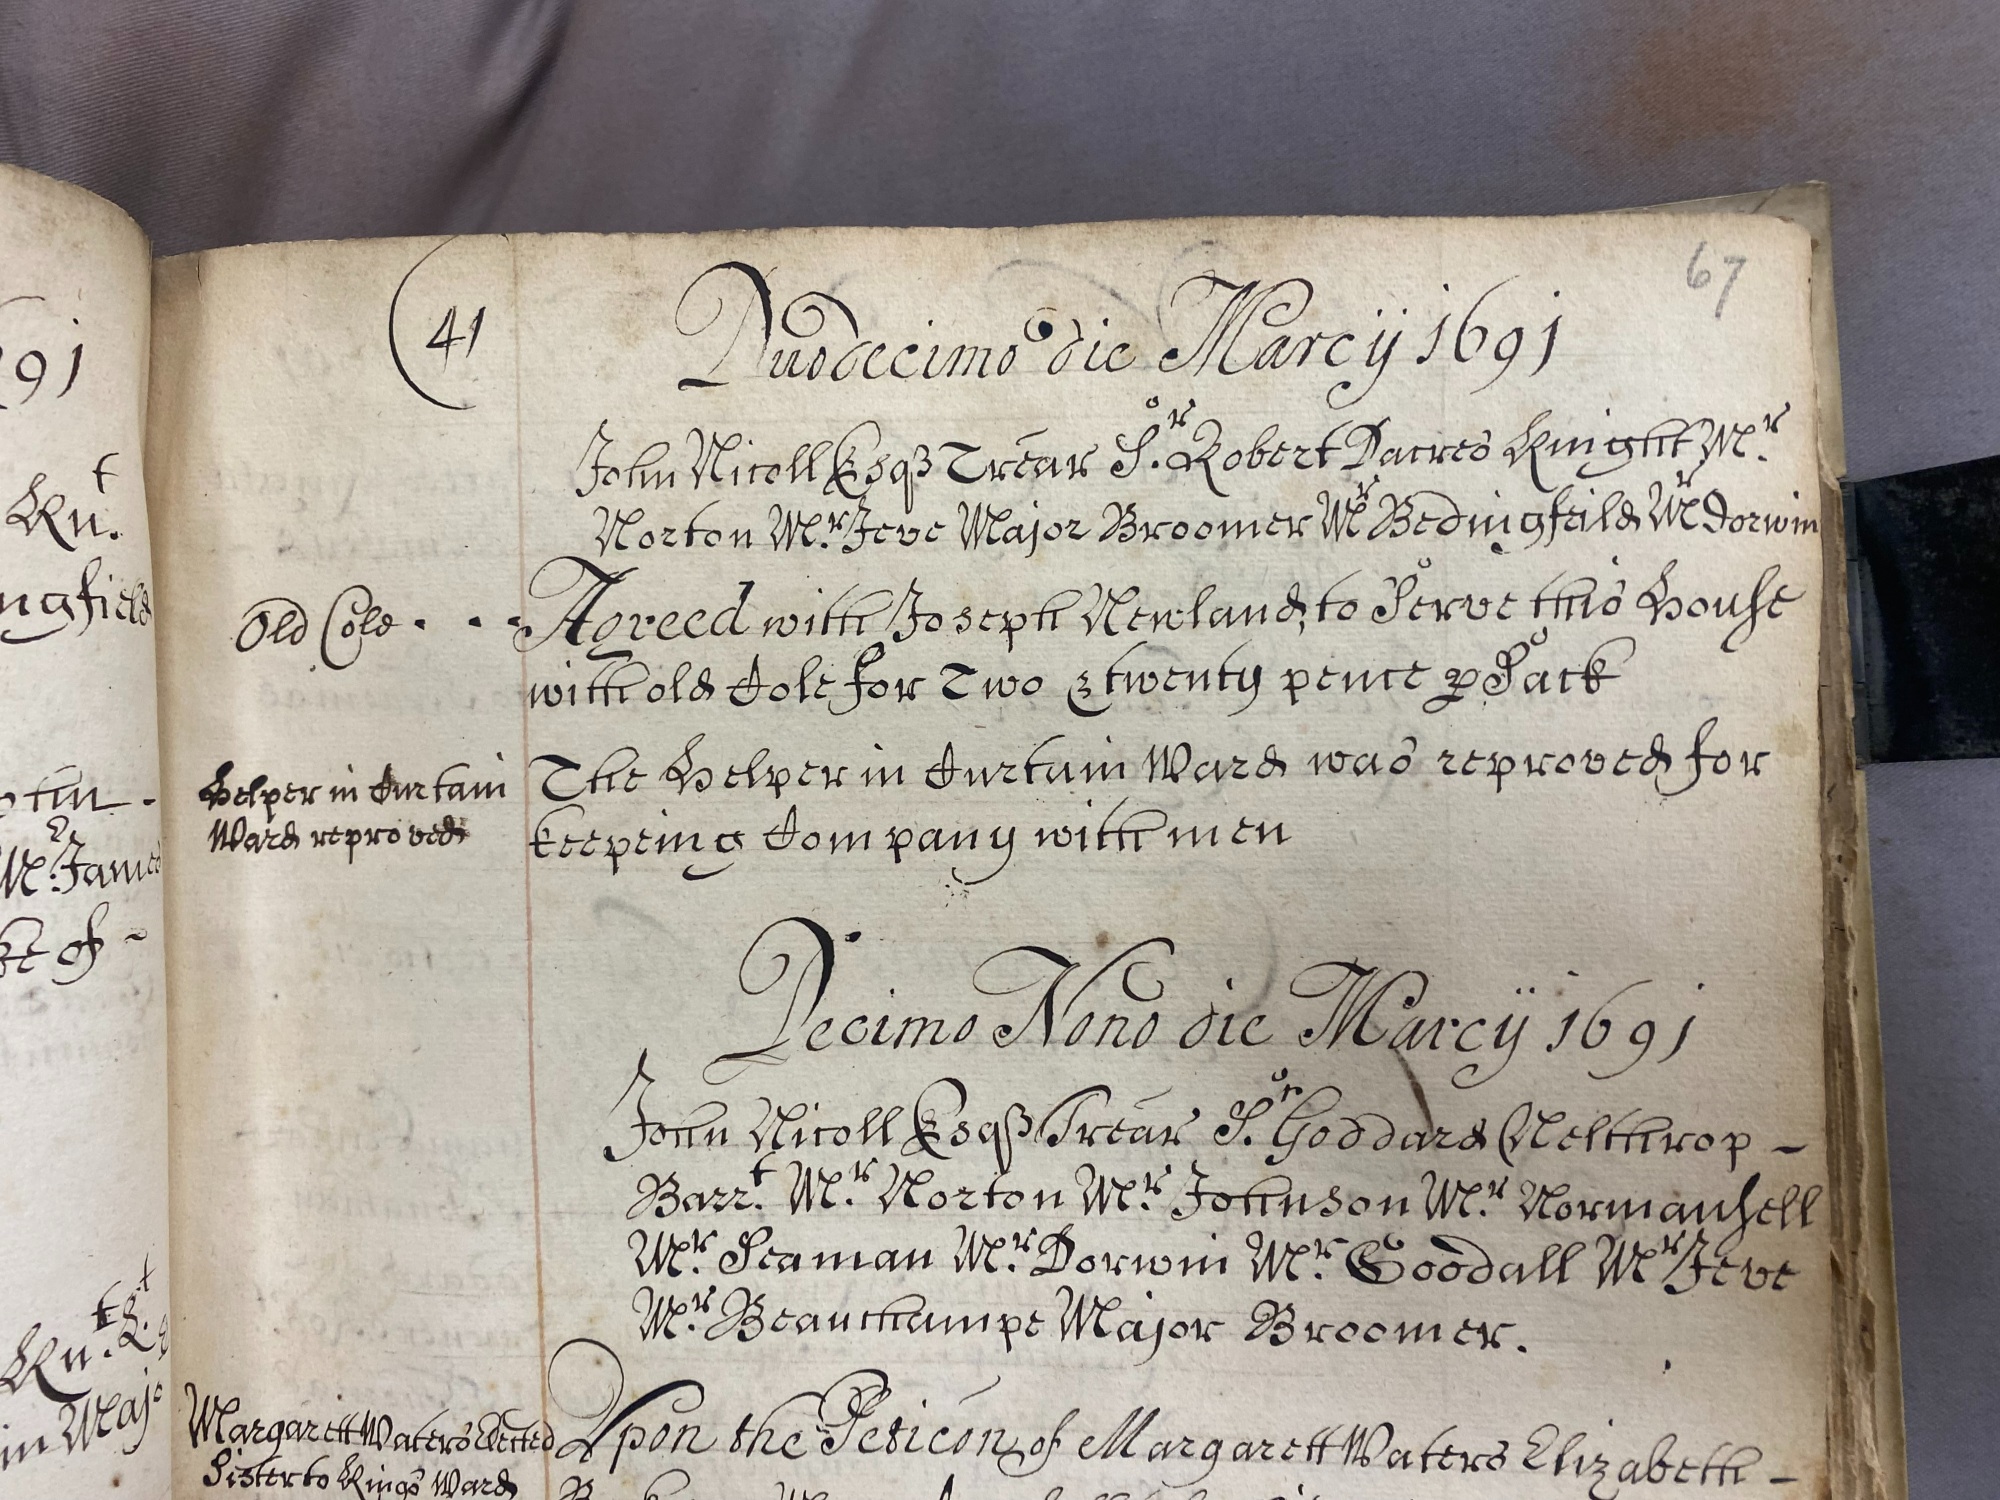 67
(41
Duodecimo die Marcij 1691
John Nicoll Esqr Trear Sr. Robert Dacres Knight Mr.
Norton Mr. Jeve Major Broomer Mr Bedingfeild Mr Dorwin
Old Cole . . . Agreed with Joseph Newland, to Serve this House
with old Cole for Two & twenty pence per Sack
Helper in Curtain
Ward reproved
The Helper in Curtain Ward was reproved for
keepeing Company with men
Decimo Nono die Marcij 1691
John Nicoll Esqr Trear Sr. Goddard Nelthrop -
Barrt. Mr. Norton Mr. Johnson Mr. Normansell
Mr. Seaman Mr. Dorwin Mr. Goodall Mr Jeve
Mr. Beauchampe Major Broomer.
Margarett Waters Elected
Sister to Kings Ward
Upon the Peticon of Margarett Waters Elizabeth -
91
Knt.
ngfield
Mr. James
ke of -
Knt.
in Majo